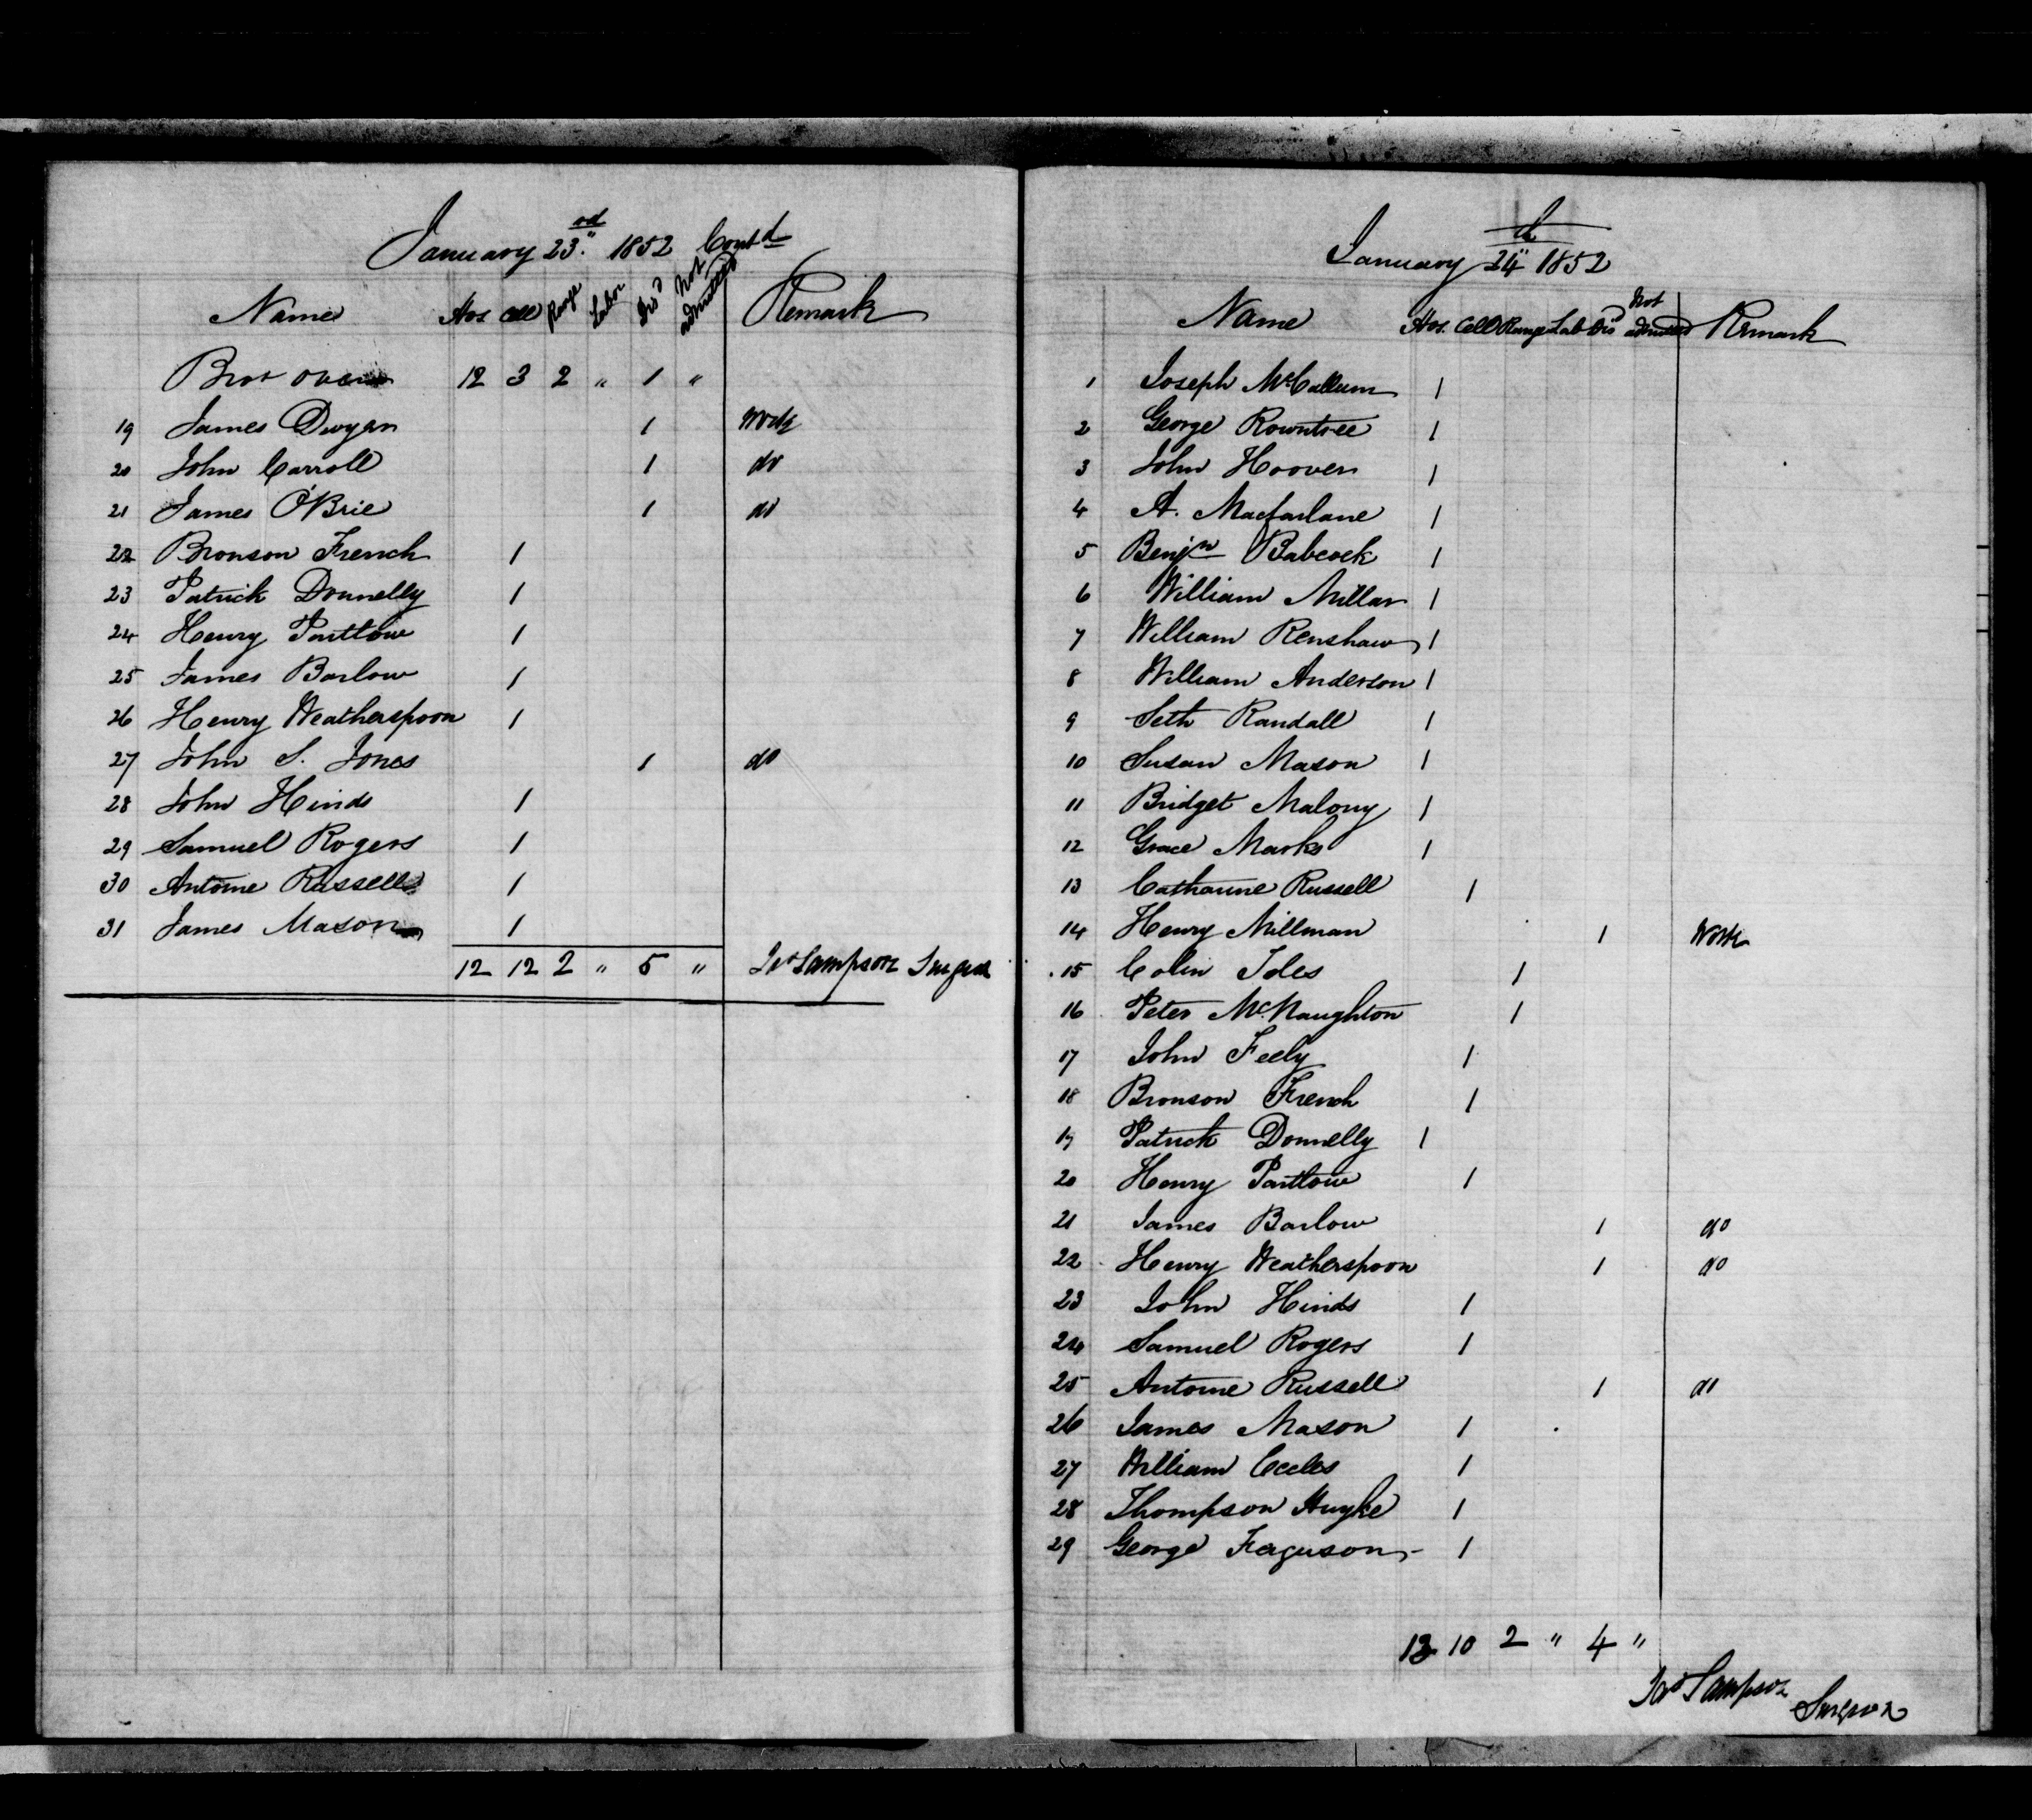 January 23rd 1852 Contd
Name Hos Cell Range Labor Dis'd Not admitted Remark
Brot over 12 3 2 " 1 "
19 James Dwyer 1 Work
20 John Carroll 1 do
21 James O'Brie 1 do
22 Bronson French 1
23 Patrick Donnelly 1
24 Henry Partlow 1
25 James Barlow 1
26 Henry Weatherspoon 1
27 John S. Jones 1 do
28 John Hinds 1
29 Samuel Rogers 1
30 Antoine Russell 1
31 James Mason 1
12 12 2 " 5 " Jas Sampson Surgeon
January 24th 1852
Name Hos. Cell Range Lab Dis Not admitted Remark
1 Joseph McCallum 1
2 George Rowntree 1
3 John Hoover 1
4 A. Macfarlane 1
5 Benjn Babcock 1
6 William Millar 1
7 William Renshaw 1
8 William Anderson 1
9 Seth Randall 1
10 Susan Mason 1
11 Bridget Malony 1
12 Grace Marks 1
13 Catharine Russell 1
14 Henry Millman 1 Work
15 Colin Isles 1
16 Peter McNaughton 1
17 John Feely 1
18 Bronson French 1
19 Patrick Donnelly 1
20 Henry Partlow 1
21 James Barlow 1 do
22 Henry Weatherspoon 1 do
23 John Hinds 1
24 Samuel Rogers 1
25 Antoine Russell 1 do
26 James Mason 1
27 William Eccles 1
28 Thompson Huyke 1
29 George Ferguson 1
13 10 2 " 4 "
Jas Sampson
Surgeon